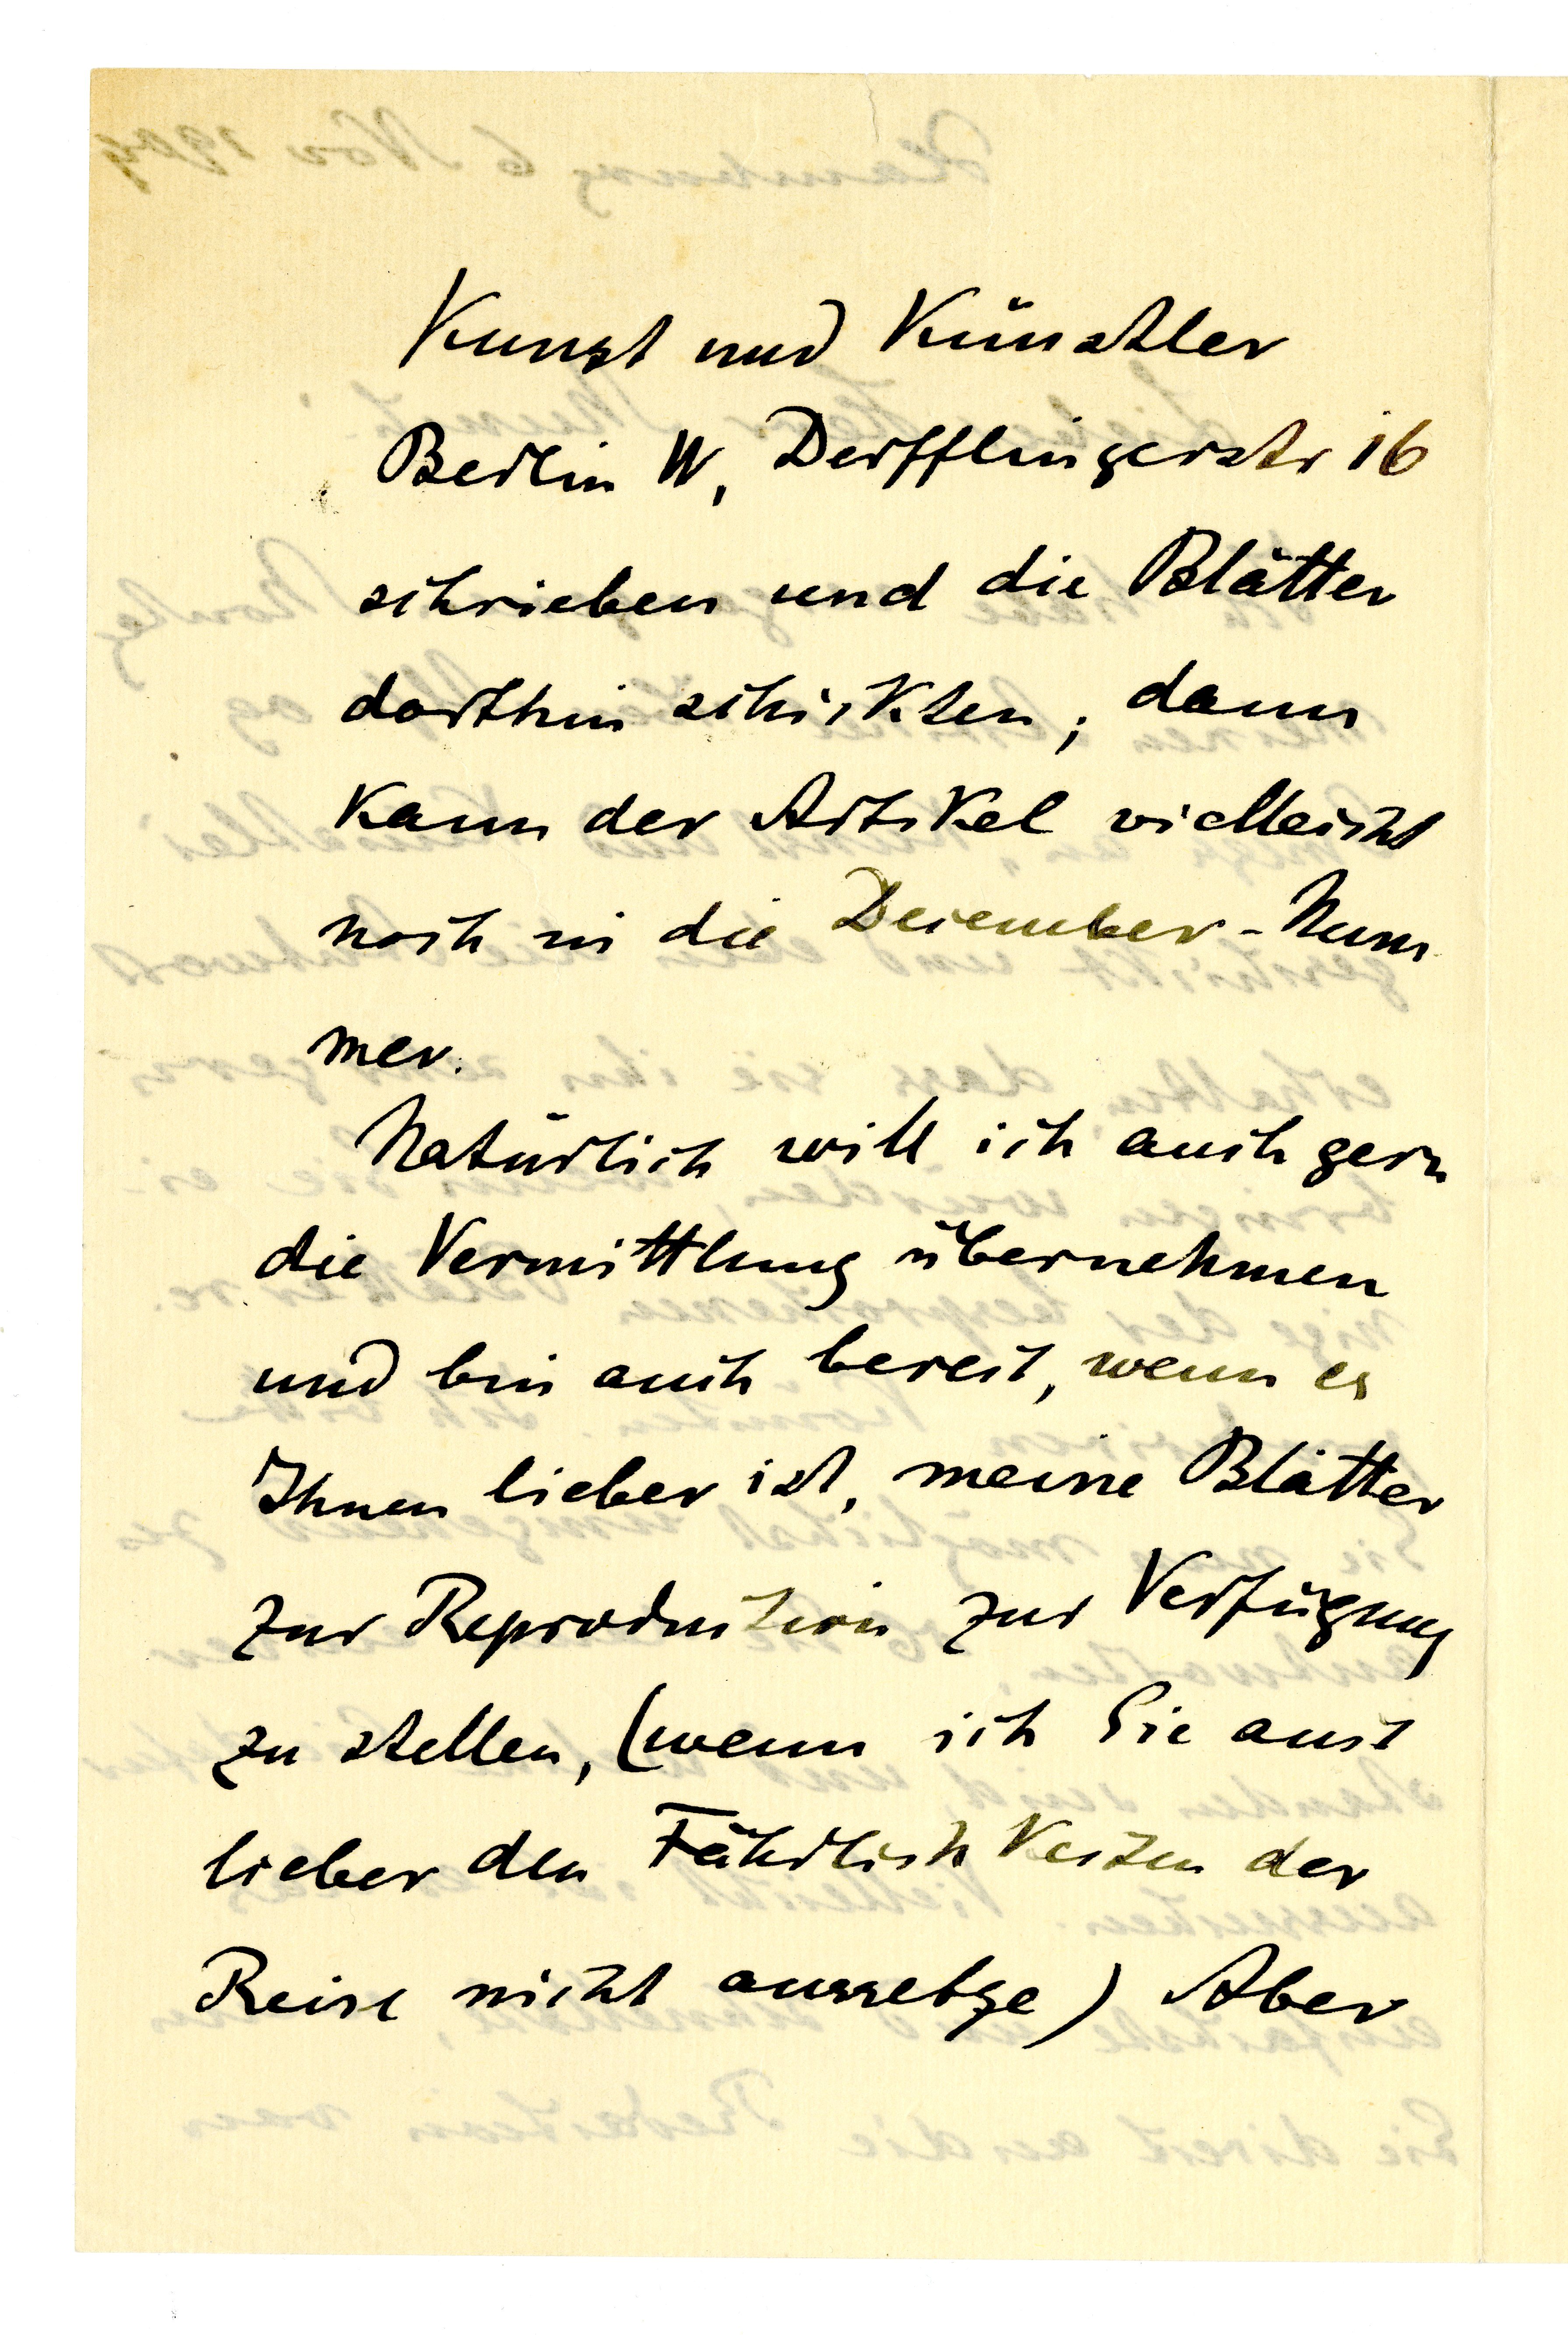 Kunst und Künstler
Berlin W, Derfflingerstr 16
schrieben und die Blätter
dorthin schickten, dann
kann der Artikel vielleicht
noch in die December-Num
mer.
Natürlich will ich auch gern
die Vermittlung übernehmen
und bin auch bereit, wenn es
Ihnen lieber ist, meine Blätter
zur Reproduction zur Verfügung
zu stellen, (wenn ich Sie auch
lieber den Fährlichkeiten der
Reise nicht aussetze) Aber